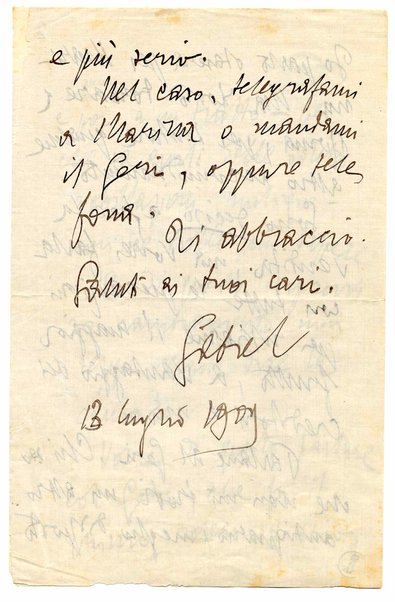 e più serio.
Nel caso, telegrafami
a Marina o mandami
il Geri, oppure tele
fona.
Ti abbraccio.
Saluti ai tuoi cari.
Gabriel
13 luglio 1909